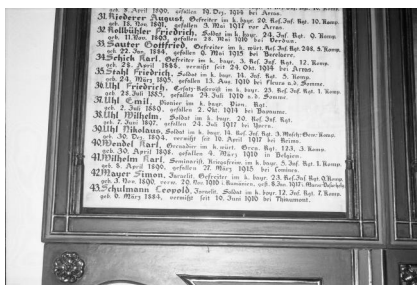 geb. 9. April 1890, gefallen 19. Dez. 1914 bei Arras.
31. Riederer August, Gefreiter im k. bayr. 20. Res. Inf. Rgt. 10. Komp.
geb. 18. Nov. 1891, gefallen 3. Mai 1917 vor Arras.
32. Rollbühler Friedrich, Soldat im k. bayr. 24. Inf. Rgt. 9. Komp.
geb. 11. Nov. 1893, gefallen 28. Mai 1916 bei Verdun.
33. Sauter Gottfried, Gefreiter im k. würt. Res. Inf. Rgt. 248, 8. Komp.
geb. 22. Jan. 1884, gefallen 9. Mai 1915 bei
34. Schick Karl, Gefreiter im k. bayr. 3. Res. Inf. Rgt. 12. Komp.
geb. 28. April 1886, vermißt seit 24. Okt. 1914 bei Arras.
35. Strahl Friedrich, Soldat im k. bayr. 14. Inf. Rgt. 5. Komp.
geb. 24. März 1895, gefallen 13. Aug. 1916 bei a. d. Somme.
36. Uhl Friedrich, Ersatz-Reservist im k. bayr. 23. Res. Inf. Rgt. 1. Komp.
geb. 28. Juli 1885, gefallen 24. Juli 1916 a. d. Somme.
37. Uhl Emil, Pionier im k. bayr. Pion. Rgt.
geb. 2. Juli 1889, gefallen 2. Okt. 1914 bei Bapaume.
38. Uhl Wilhelm, Soldat im k. bayr. 20. Res. Inf. Rgt.
geb. 7. Juni 1897, gefallen 24. Juli 1917 bei Ypern.
39. Uhl Nikolaus, Soldat im k. bayr. 14. Res. Inf. Rgt. 3. Masch.-Gew.-Komp.
geb. 30. Dez. 1894, vermißt seit 16. April 1917 bei Reims.
40. Wendel Karl, Grenadier im k. würt. Gren. Rgt. 123, 3. Komp.
geb. 30. April 1898, gefallen 4. März 1918 in Belgien.
41. Wilhelm Karl, Seminarist, Kriegsfreiw. im k. bayr. 5. Inf. Rgt. 1. Komp.
geb. 5. April 1896, gefallen 27. März 1915 bei
42. Mayer Simon, Israelit, Gefreiter im k. bayr. 23. Res. Inf. Rgt. 9. Komp.
geb. 3. Nov. 1890, verw. 20. Nov. 1916 i. Rumänien, gest. 8. Jan. 1917
43. Schulmann Leopold, Israelit, Soldat im k. bayr. 12. Inf. Rgt. 7. Komp.
geb. 6. März 1884, vermißt seit 10. Juni 1916 bei Thiaumont.